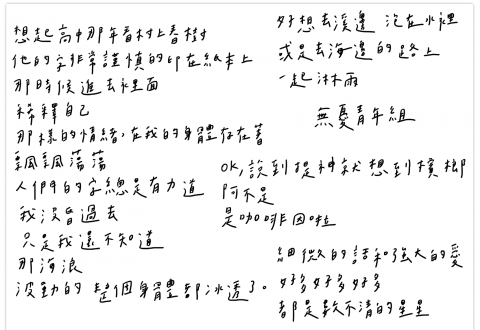 想起高中那年看村上春樹
他的字非常謹慎的印在紙本上
那時候進去裡面
稀釋自己
那樣的情緒,在我的身體存在著
飄飄蕩蕩
人們的字總是有力道
我沒昏過去
只是我還不知道
那海浪
波動的 整個身體都冰透了。
好想去溪邊 泡在水裡
或是去海邊的路上
一起淋雨
無憂青年組
OK,談到提神就想到檳榔
阿不是
是咖啡因啦
細微的話和強大的愛
好多好多好多
都是數不清的星星